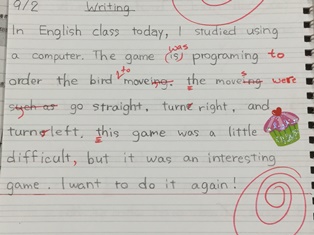 9/2 Writing
In English class today, I studied using
was
a computer. The game (is) programing to
to s
order the bird moveing. the moveing were
such as go straight, turne right, and
turn left. this game was a little
difficult, but it was an interesting
game. I want to do it again!